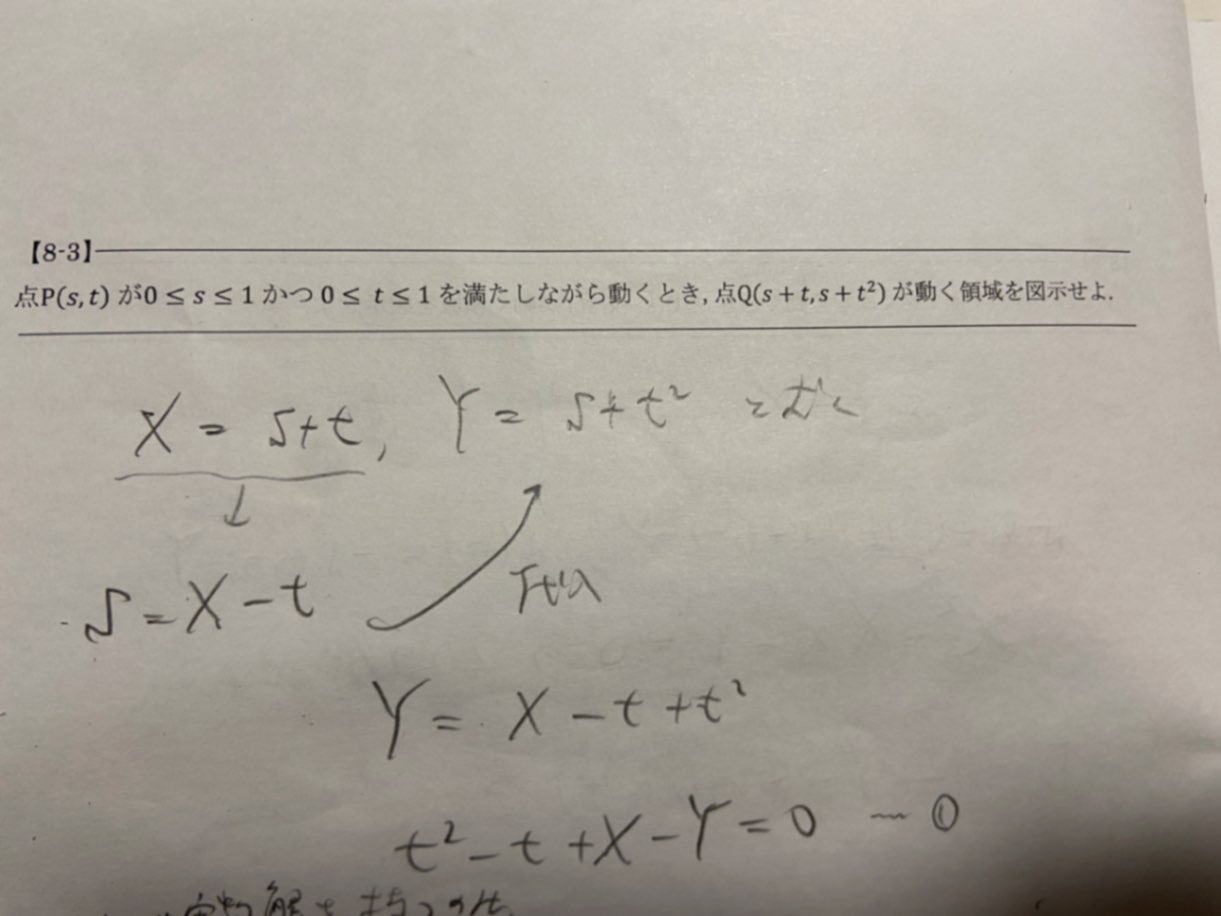 【8-3】
点P(s,t) が0 ≤ s ≤ 1 かつ 0 ≤ t ≤ 1 を満たしながら動くとき, 点Q(s + t, s + t²) が動く領域を図示せよ.
X = s+t, Y = s+t² とおく
↓
s = X - t 代入
Y = X - t + t²
t² - t + X - Y = 0 … ①
実数解を持つ